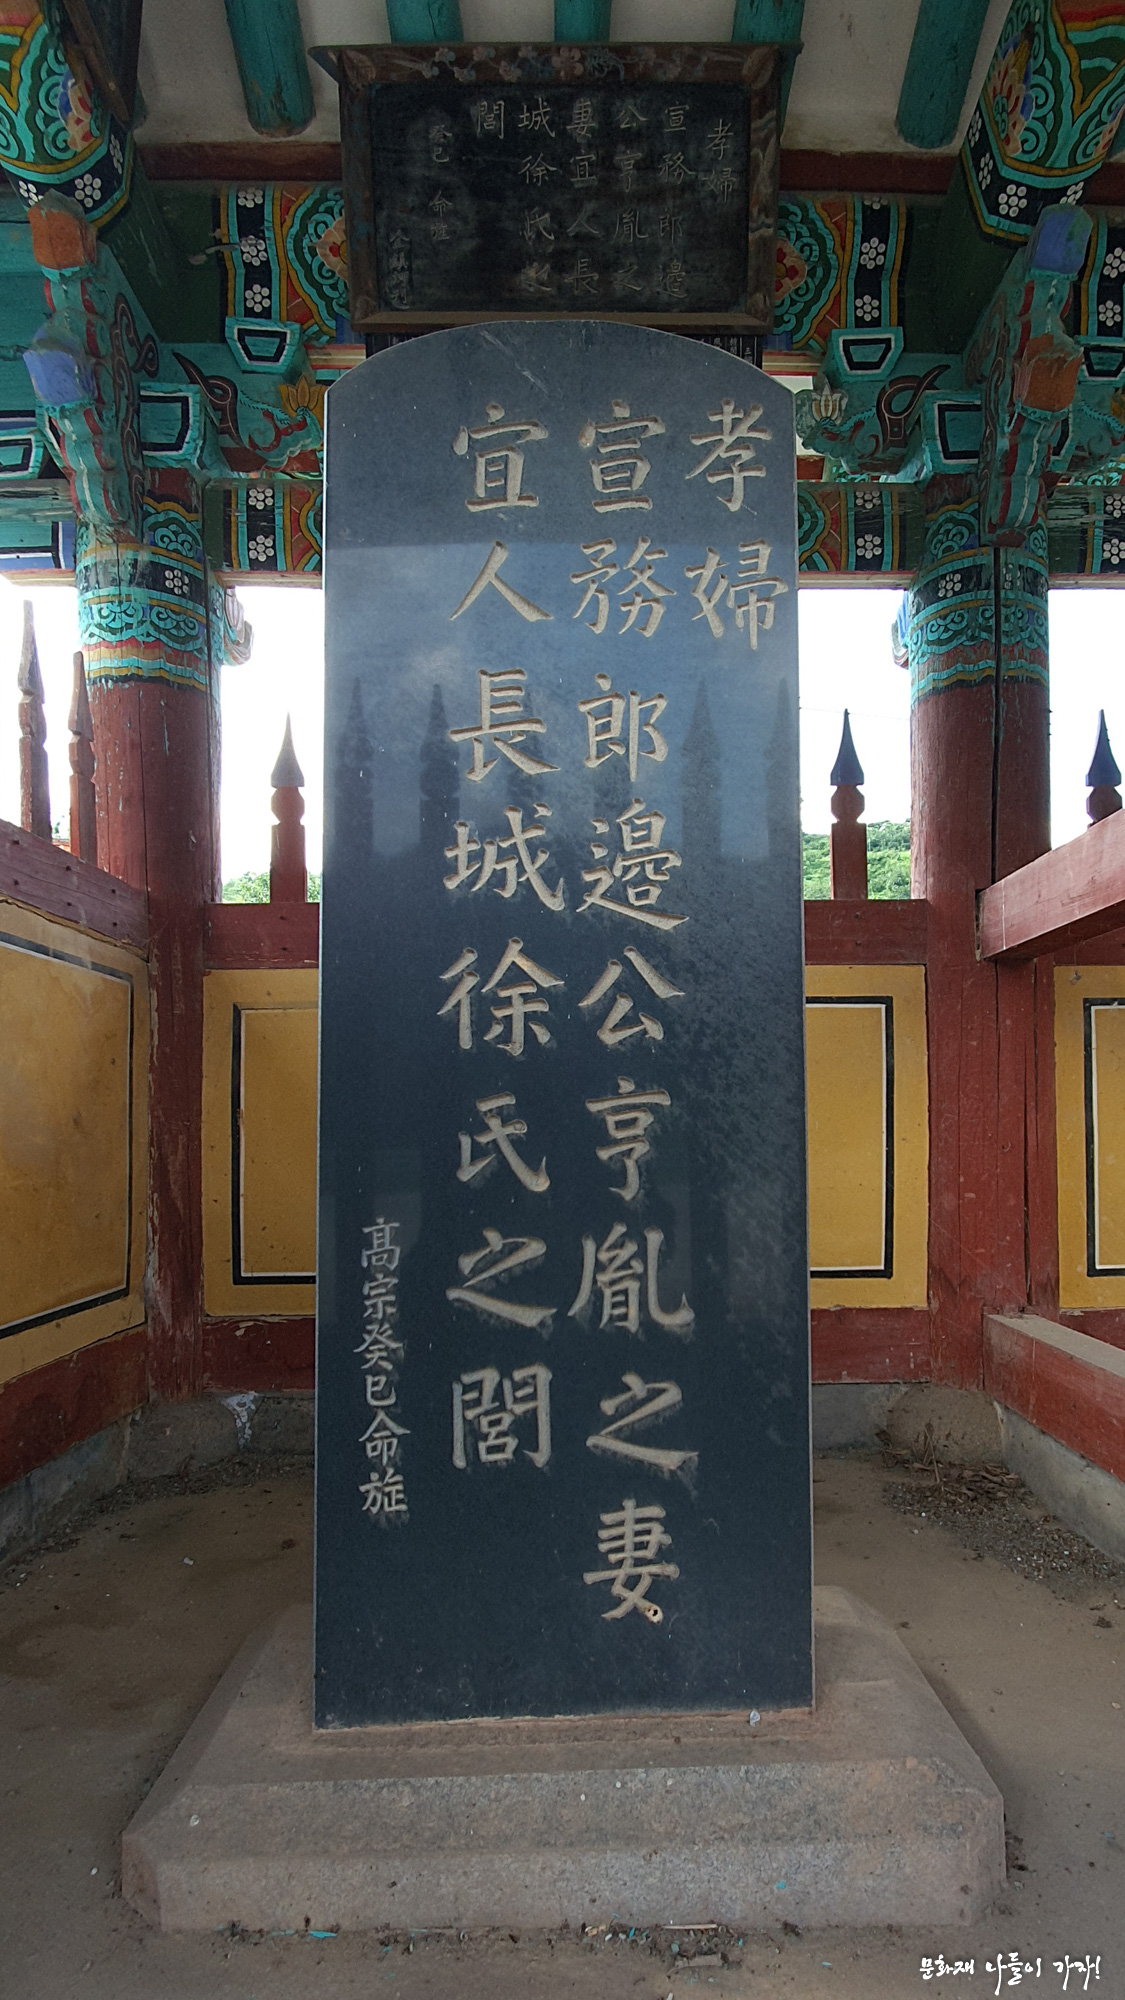 孝婦
宣務郎邉
公亨胤之
妻宜人長
城徐氏之
閭
癸巳 命旌
孝婦
宣務郎邉公亨胤之妻
宜人長城徐氏之閭
高宗癸巳命旌
문화재 나들이 가자!